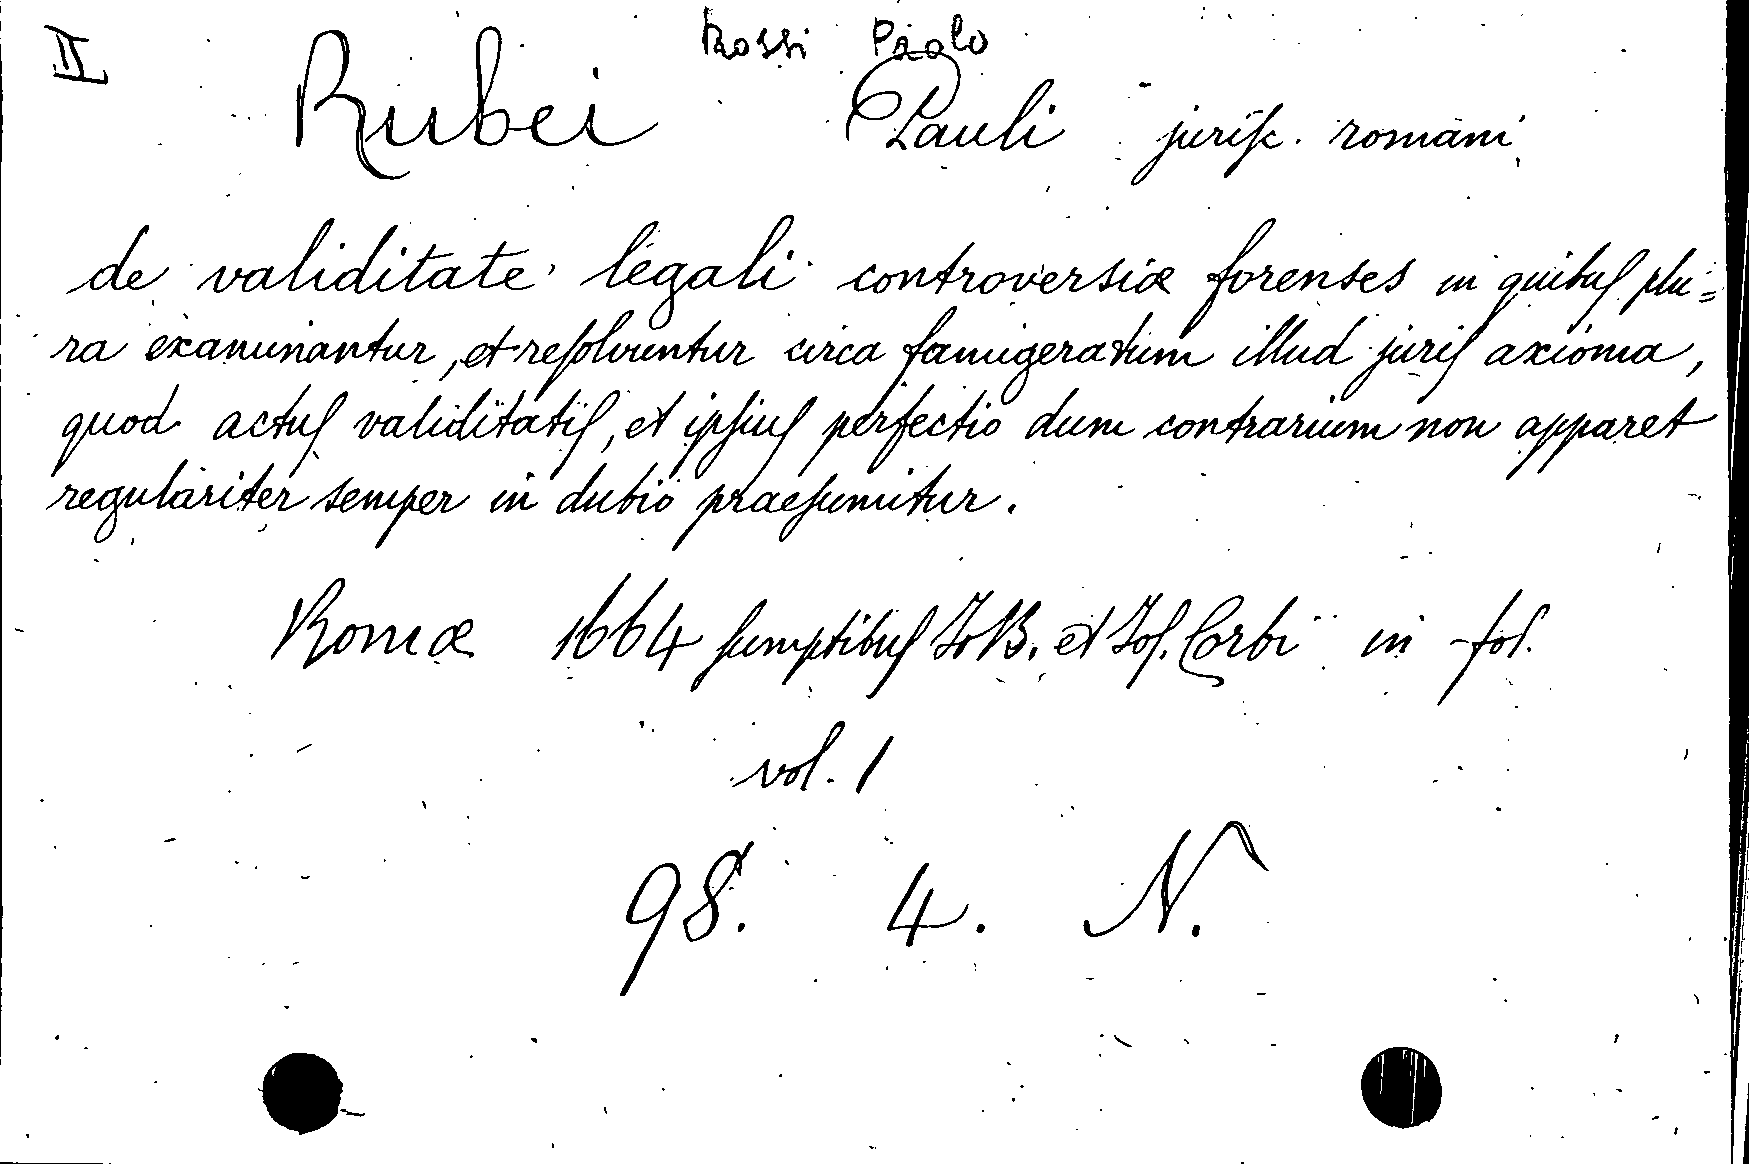 II
Rossi Paolo
Rubei Pauli jurisc. romani
de validitate legali controversiæ forenses in quibus plu=
ra examinantur, et resolvuntur circa famigeratum illud juris axioma,
quod actus validitatis, et ipsius perfectio dum contrarium non apparet
regulariter semper in dubio praesumitur.
Romæ 1664 sumptibus Jo B. et Jos. Corbi in fol.
vol. 1
98. 4. N.